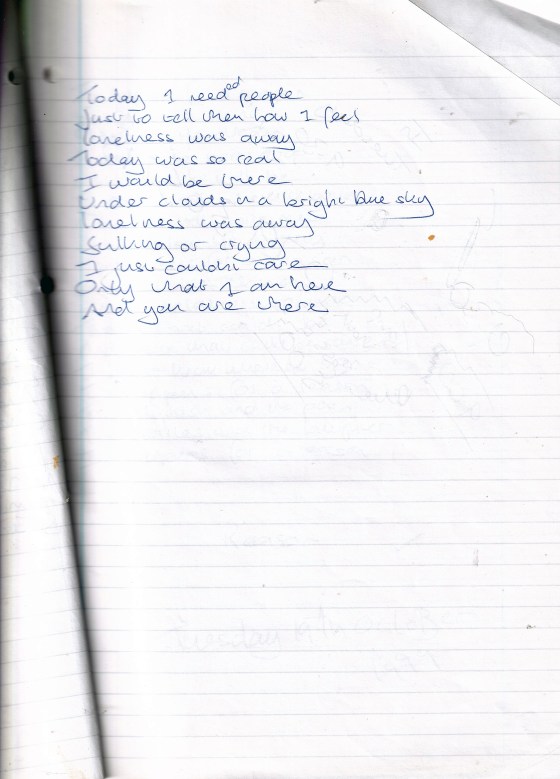 Today I needed people
Just to tell them how I feel
Loneliness was away
Today was so real
I would be there
Under clouds in a bright blue sky
Loneliness was away
Sulking or crying
I just couldn't care
Only that I am here
And you are there
Tuesday